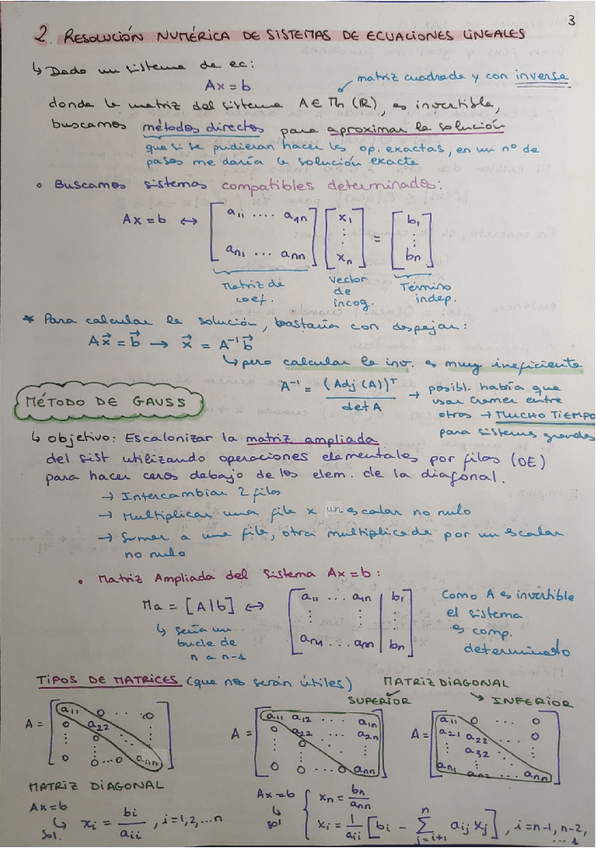 3
2. RESOLUCIÓN NUMÉRICA DE SISTEMAS DE ECUACIONES LINEALES
↳ Dado un sistema de ec:
Ax = b
matriz cuadrada y con inversa
donde la matriz del sistema A ∈ Mn (ℝ), es invertible,
buscamos métodos directos para aproximar la solución
que si se pudieran hacer las op. exactas, en un nº de
pasos me daría la solución exacta
◦ Buscamos sistemas compatibles determinados:
Ax = b ↔ [a11 .... a1n ; an1 ... ann] [x1 ⋮ xn] = [b1 ⋮ bn]
Matriz de coef. Vector de incog. Término indep.
* Para calcular la solución, bastaría con despejar:
Ax⃗ = b⃗ → x⃗ = A⁻¹b⃗
↳ pero calcular la inv. es muy ineficiente
A⁻¹ = (Adj (A))ᵀ / det A → posibl. habría que
usar Cramer entre
otros → MUCHO TIEMPO
para sistemas grandes
MÉTODO DE GAUSS
↳ objetivo: Escalonizar la matriz ampliada
del sist utilizando operaciones elementales por filas (OE)
para hacer ceros debajo de los elem. de la diagonal.
→ Intercambiar 2 filas
→ Multiplicar una fila x un escalar no nulo
→ Sumar a una fila, otra multiplicada por un escalar
no nulo
• Matriz Ampliada del sistema Ax = b:
Ma = [A|b] ↔ [a11 ... a1n | b1 ; ⋮ ⋮ | ⋮ ; an1 ... ann | bn]
↳ sería un
bucle de
n a n-1
Como A es invertible
el sistema
es comp.
determinado
TIPOS DE MATRICES (que nos serán útiles)
MATRIZ DIAGONAL
SUPERIOR
INFERIOR
A = [a11 0 ... 0 ; 0 a22 ... ; 0 0 ... 0 ann]
A = [a11 a12 ... a1n ; 0 a22 ... a2n ; 0 0 ... 0 ann]
A = [a11 0 ... 0 ; a21 a22 ... 0 ; a32 ... ; an1 an2 ... ann]
MATRIZ DIAGONAL
Ax = b
↳ sol. xi = bi / aii , i = 1,2,...n
Ax = b
↳ sol { xn = bn / ann
xi = 1/aii [bi - Σ(j=i+1, n) aij xj] , i = n-1, n-2, ... 1